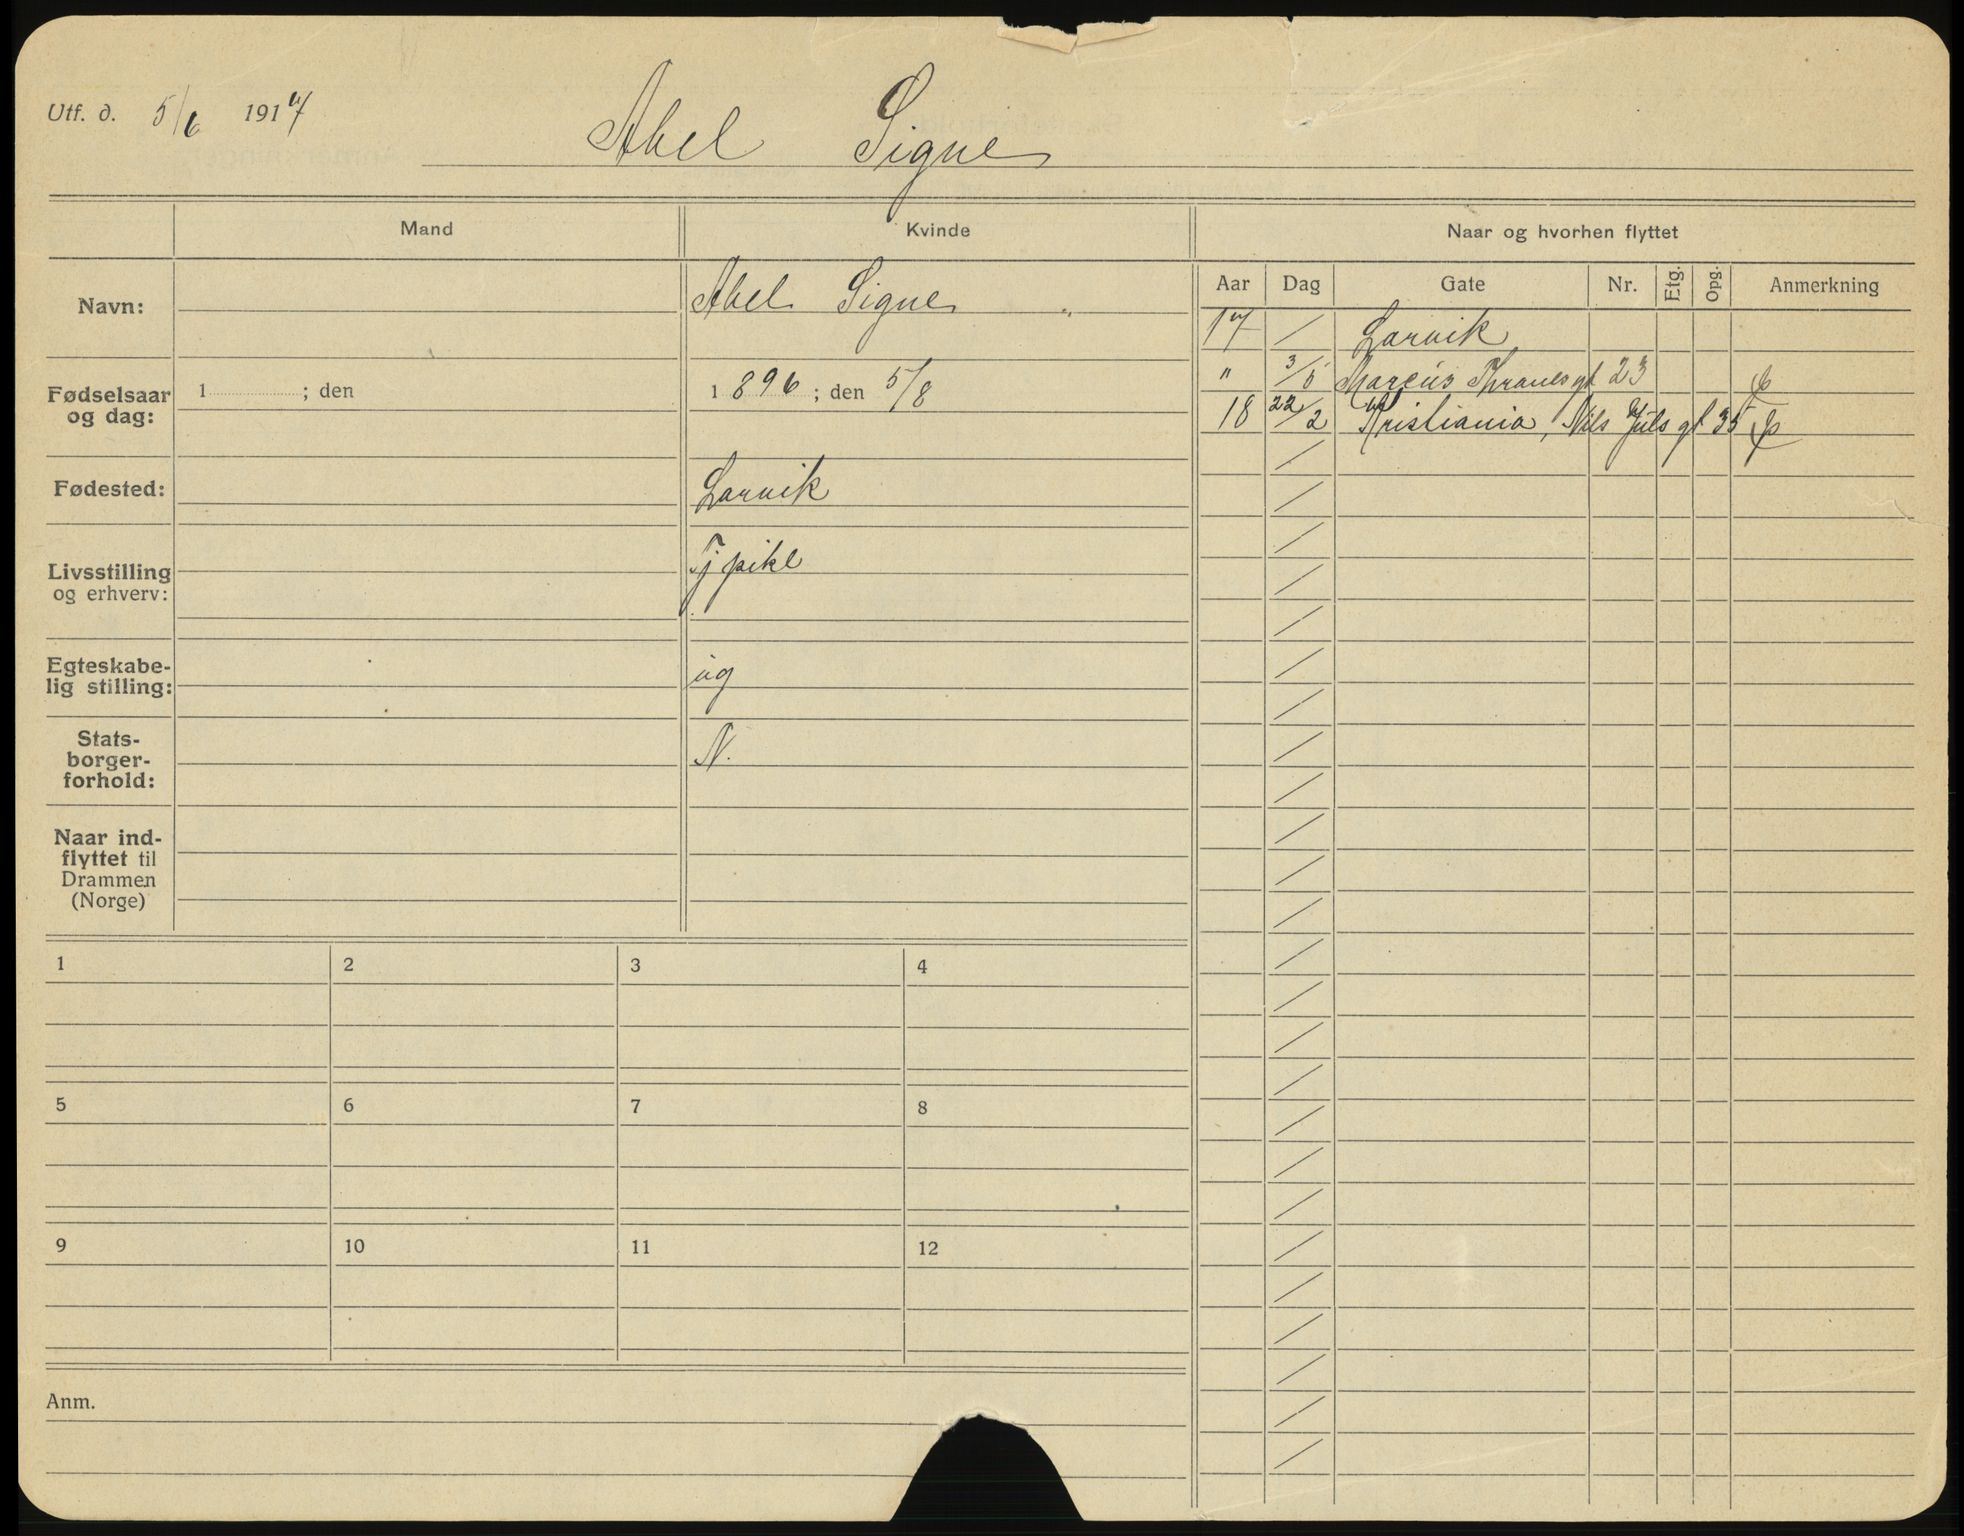 Utf. d. 5/6 1917
Abel Signe
Mand
Kvinde
Naar og hvorhen flyttet
Aar Dag Gate Nr. Etg. Opg. Anmerkning
Navn:
Abel Signe "
Fødselsaar
og dag:
1 ; den
1896 ; den 5/8
Fødested:
Larvik
Livsstilling
og erhverv:
Tj pike
Egteskabe-
lig stilling:
ug
Stats-
borger-
forhold:
N.
Naar ind-
flyttet til
Drammen
(Norge)
17 / Larvik
" 3/5 Marcus Thranes gt 23
18 22/2 Kristiania, Nils Juls gt 35
1 2 3 4
5 6 7 8
9 10 11 12
Anm.